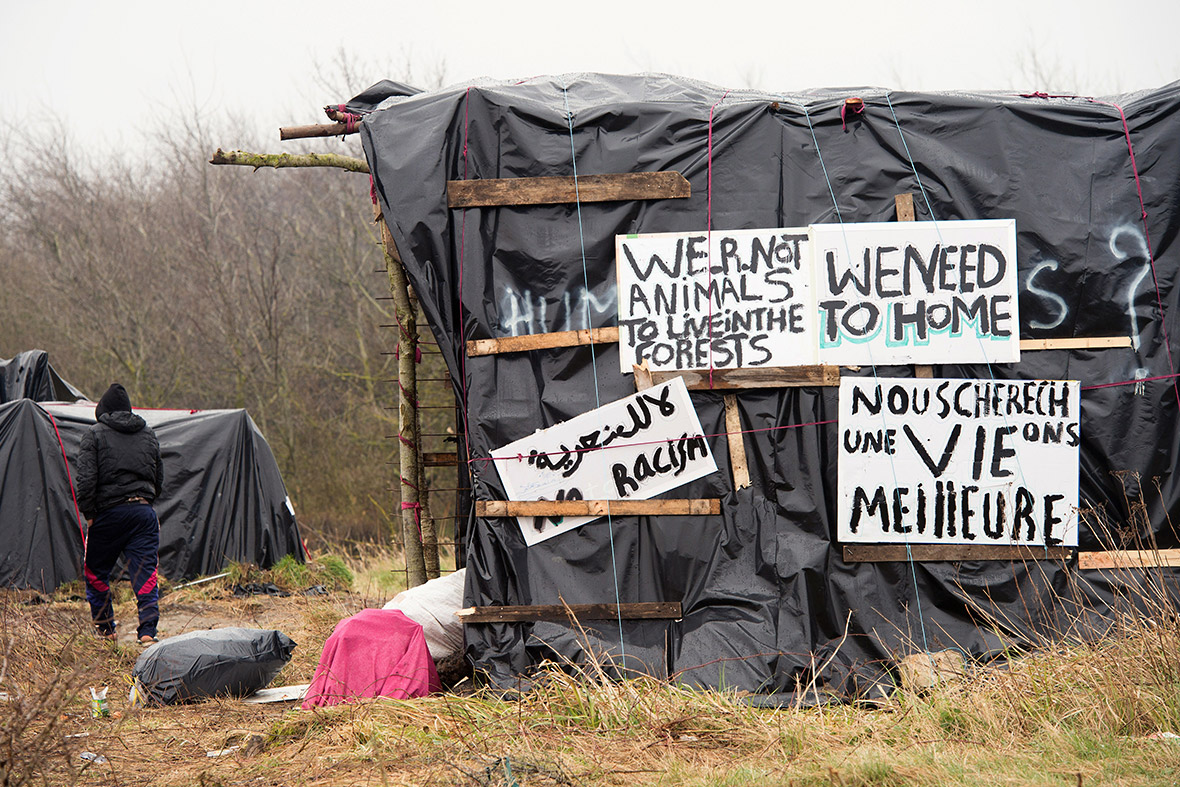 W.E.R.NOT
ANIMALS
TO LIVEiNTHE
FORESTS
WENEED
TO HOME
HUM
S ?
لا للعنصرية
NO RACISM
NOUSCHERECH
UNE VIE ONS
MEILLEURE